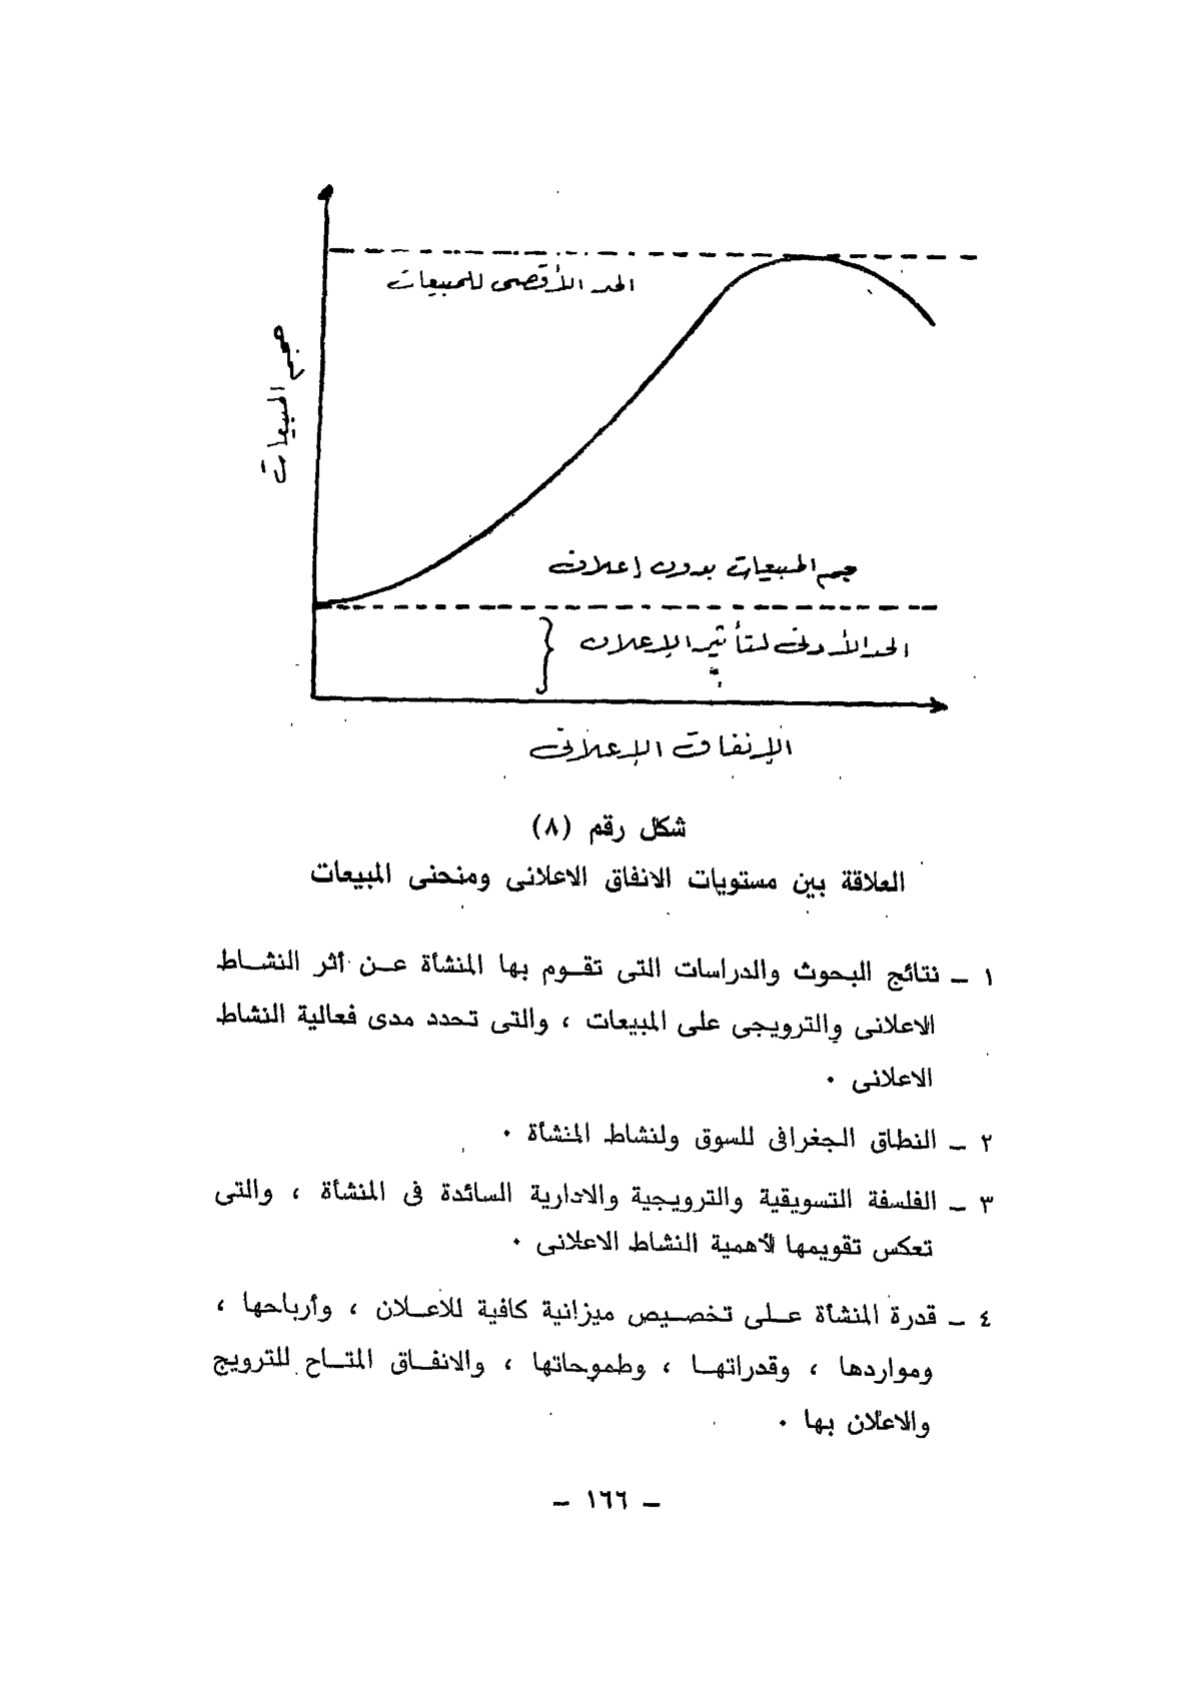 الحد الأقصى للمبيعات
حجم المبيعات
حجم المبيعات بدون إعلان
الحد الأدنى لتأثير الإعلان
الإنفاق الإعلانى
شكل رقم (٨)
العلاقة بين مستويات الانفاق الاعلانى ومنحنى المبيعات
١ ــ نتائج البحوث والدراسات التى تقوم بها المنشأة عن أثر النشاط
الاعلانى والترويجى على المبيعات ، والتى تحدد مدى فعالية النشاط
الاعلانى ٠
٢ ــ النطاق الجغرافى للسوق ولنشاط المنشأة ٠
٣ ــ الفلسفة التسويقية والترويجية والادارية السائدة فى المنشأة ، والتى
تعكس تقويمها لأهمية النشاط الاعلانى ٠
٤ ــ قدرة المنشأة على تخصيص ميزانية كافية للاعلان ، وأرباحها ،
ومواردها ، وقدراتها ، وطموحاتها ، والانفاق المتاح للترويج
والاعلان بها ٠
ــ ١٦٦ ــ